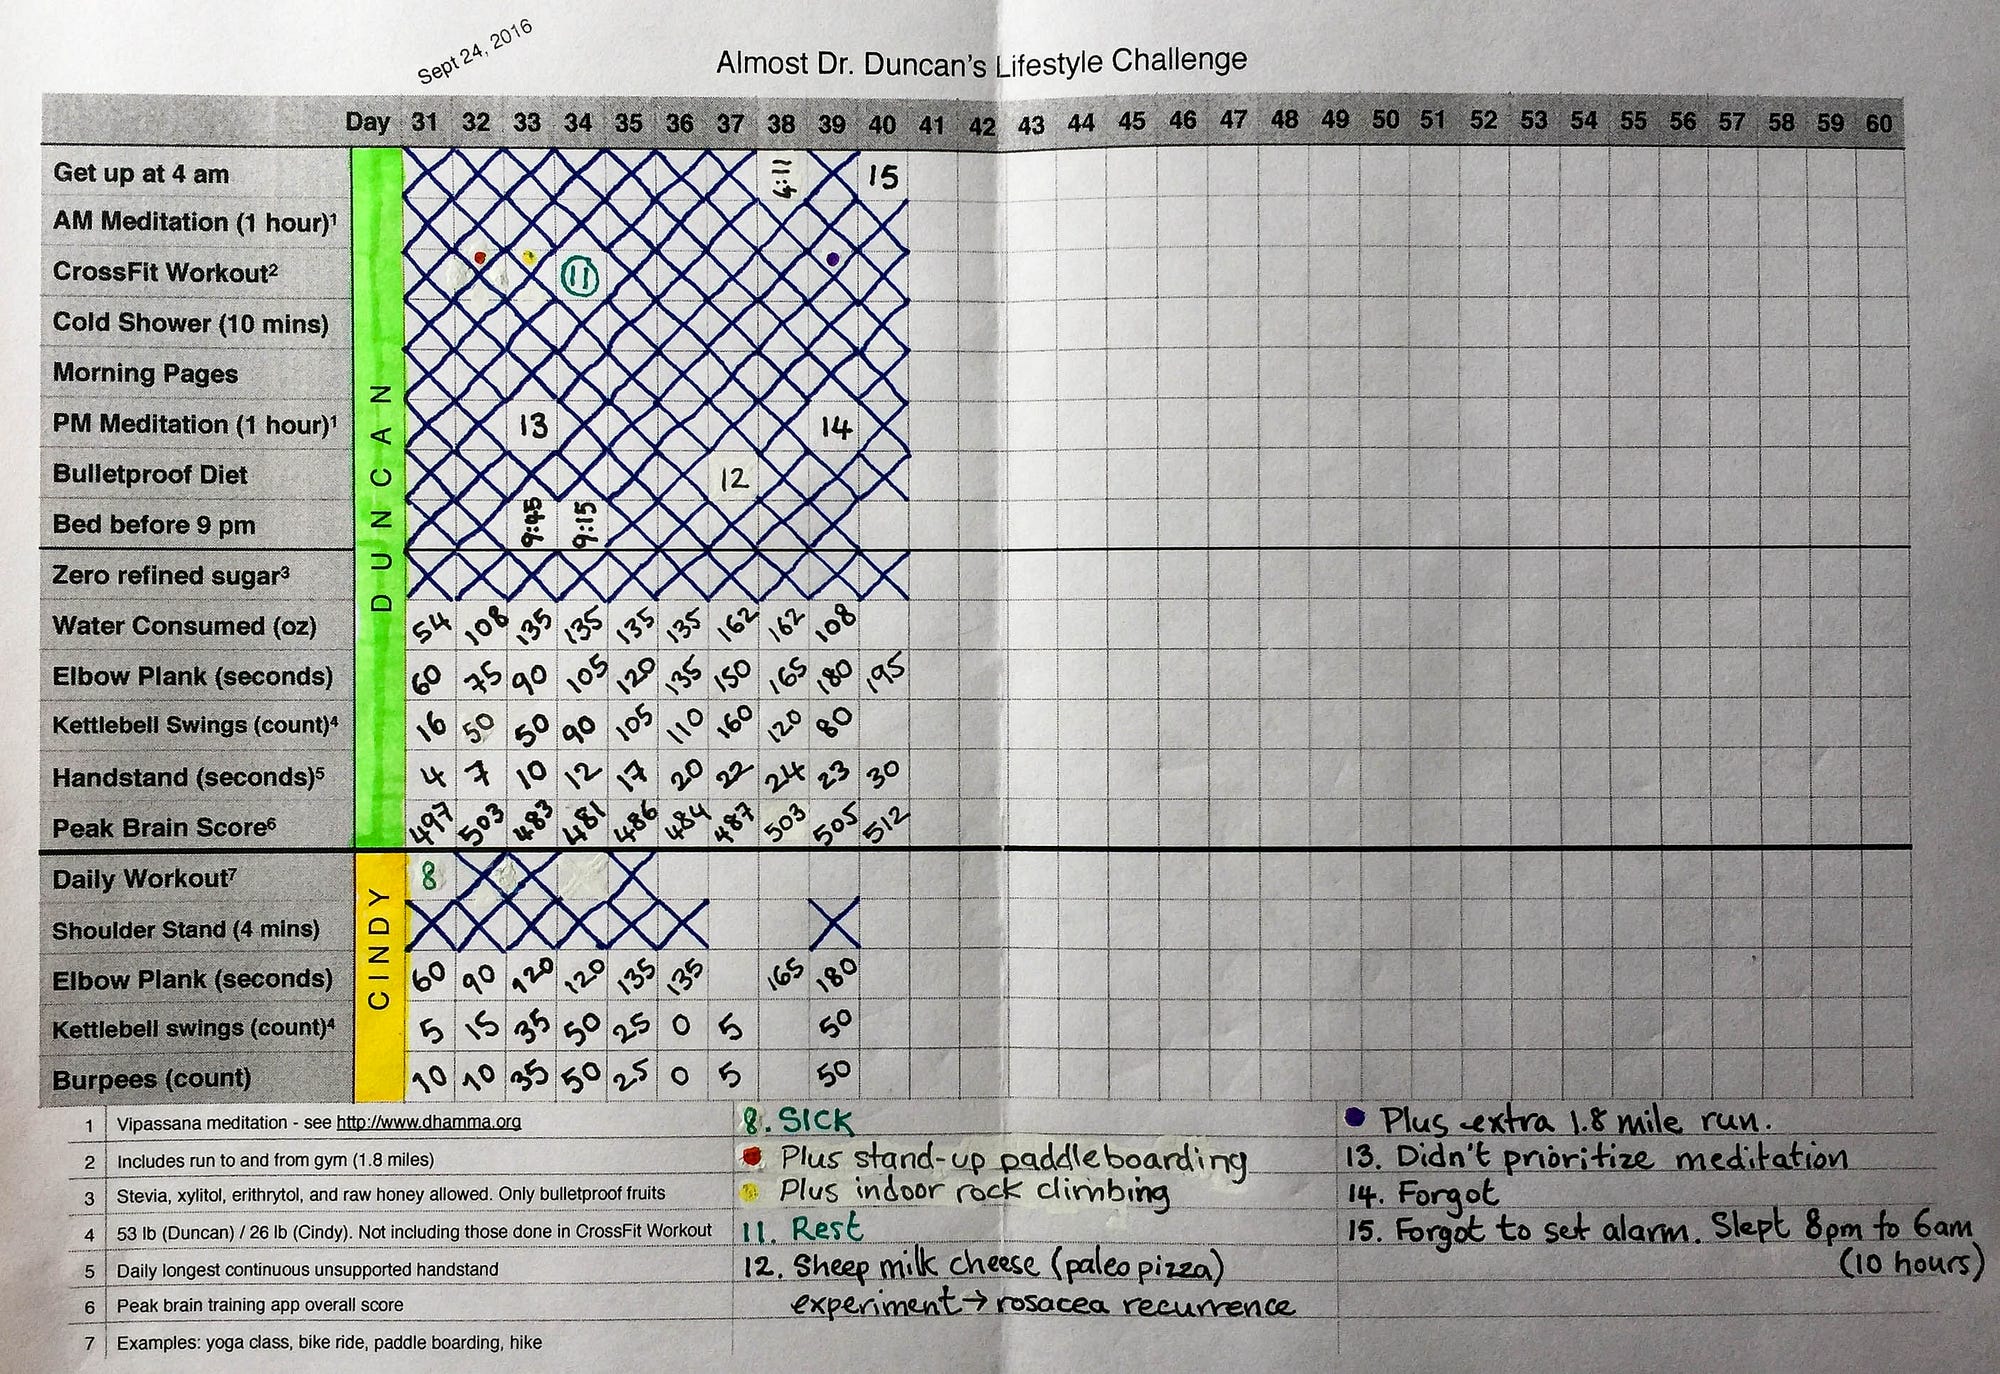 Sept 24, 2016
Almost Dr. Duncan's Lifestyle Challenge
Day 31 32 33 34 35 36 37 38 39 40 41 42 43 44 45 46 47 48 49 50 51 52 53 54 55 56 57 58 59 60
DUNCAN
Get up at 4 am 4:11 15
AM Meditation (1 hour)¹
CrossFit Workout² 11
Cold Shower (10 mins)
Morning Pages
PM Meditation (1 hour)¹ 13 14
Bulletproof Diet 12
Bed before 9 pm 9:45 9:15
Zero refined sugar³
Water Consumed (oz) 54 108 135 135 135 135 162 162 108
Elbow Plank (seconds) 60 75 90 105 120 135 150 165 180 195
Kettlebell Swings (count)⁴ 16 50 50 90 105 110 160 120 80
Handstand (seconds)⁵ 4 7 10 12 17 20 22 24 23 30
Peak Brain Score⁶ 497 503 483 481 486 484 487 503 505 512
CINDY
Daily Workout⁷ 8
Shoulder Stand (4 mins)
Elbow Plank (seconds) 60 90 120 120 135 135 165 180
Kettlebell swings (count)⁴ 5 15 35 50 25 0 5 50
Burpees (count) 10 10 35 50 25 0 5 50
1 Vipassana meditation - see http://www.dhamma.org
2 Includes run to and from gym (1.8 miles)
3 Stevia, xylitol, erithrytol, and raw honey allowed. Only bulletproof fruits
4 53 lb (Duncan) / 26 lb (Cindy). Not including those done in CrossFit Workout
5 Daily longest continuous unsupported handstand
6 Peak brain training app overall score
7 Examples: yoga class, bike ride, paddle boarding, hike
8. SICK
Plus stand-up paddleboarding
Plus indoor rock climbing
11. Rest
12. Sheep milk cheese (paleo pizza)
experiment → rosacea recurrence
Plus extra 1.8 mile run.
13. Didn't prioritize meditation
14. Forgot
15. Forgot to set alarm. Slept 8pm to 6am
(10 hours)